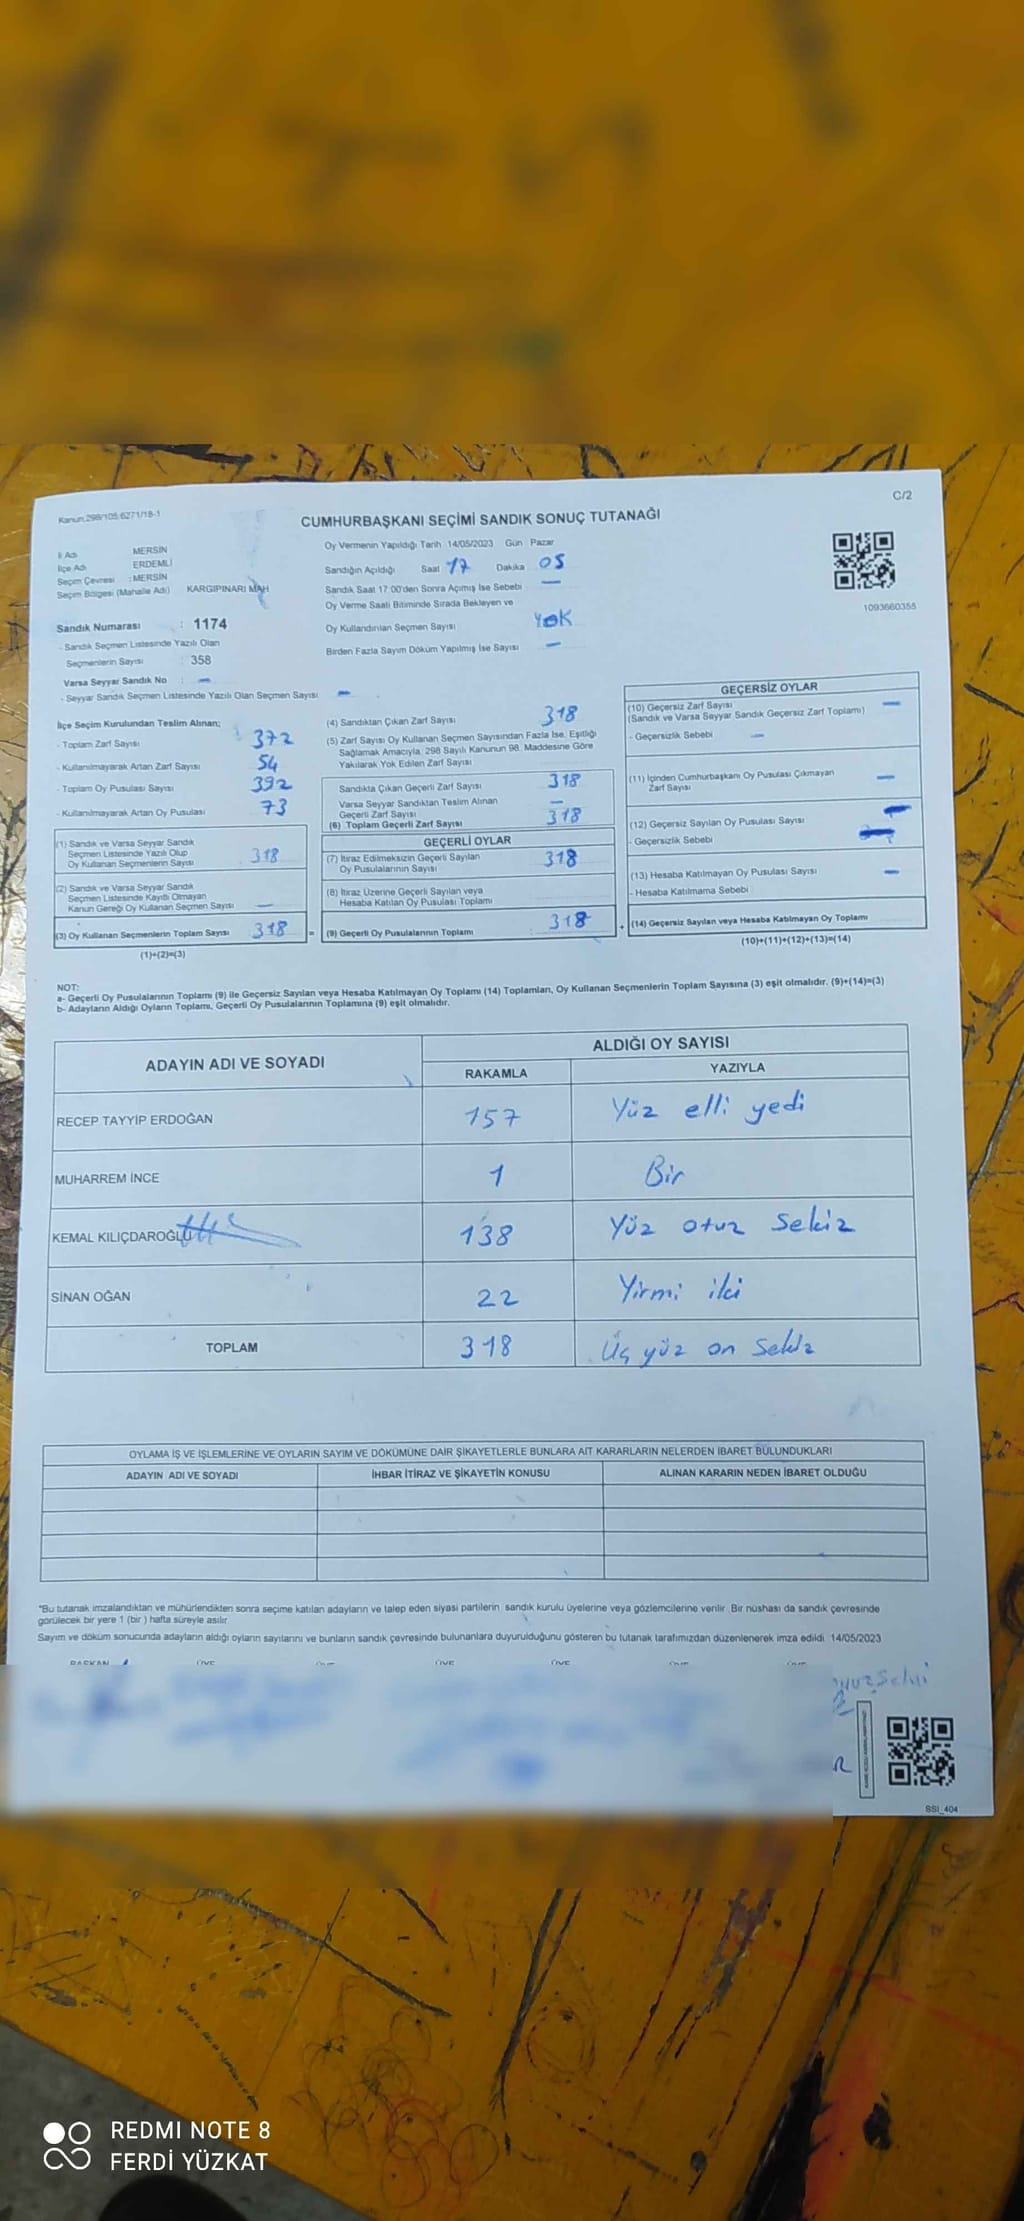 C/2
Kanun:298/105;6271/18-1
CUMHURBAŞKANI SEÇİMİ SANDIK SONUÇ TUTANAĞI
İl Adı MERSİN
İlçe Adı ERDEMLİ
Seçim Çevresi : MERSİN
Seçim Bölgesi (Mahalle Adı) KARGIPINARI MAH
Sandık Numarası : 1174
- Sandık Seçmen Listesinde Yazılı Olan
Seçmenlerin Sayısı : 358
Varsa Seyyar Sandık No : —
- Seyyar Sandık Seçmen Listesinde Yazılı Olan Seçmen Sayısı —
Oy Vermenin Yapıldığı Tarih 14/05/2023 Gün Pazar
Sandığın Açıldığı Saat 17 Dakika 05
Sandık Saat 17:00'den Sonra Açımış İse Sebebi —
Oy Verme Saati Bitiminde Sırada Bekleyen ve
Oy Kullandırılan Seçmen Sayısı YOK
Birden Fazla Sayım Döküm Yapılmış İse Sayısı —
1093660355
İlçe Seçim Kurulundan Teslim Alınan;
- Toplam Zarf Sayısı 372
- Kullanılmayarak Artan Zarf Sayısı 54
- Toplam Oy Pusulası Sayısı 392
- Kullanılmayarak Artan Oy Pusulası 73
(1) Sandık ve Varsa Seyyar Sandık
Seçmen Listesinde Yazılı Olup
Oy Kullanan Seçmenlerin Sayısı 318
(2) Sandık ve Varsa Seyyar Sandık
Seçmen Listesinde Kayıtlı Olmayan
Kanun Gereği Oy Kullanan Seçmen Sayısı —
(3) Oy Kullanan Seçmenlerin Toplam Sayısı 318 =
(1)+(2)=(3)
(4) Sandıktan Çıkan Zarf Sayısı 318
(5) Zarf Sayısı Oy Kullanan Seçmen Sayısından Fazla İse, Eşitliği
Sağlamak Amacıyla, 298 Sayılı Kanunun 98. Maddesine Göre
Yakılarak Yok Edilen Zarf Sayısı
Sandıkta Çıkan Geçerli Zarf Sayısı 318
Varsa Seyyar Sandıktan Teslim Alınan
Geçerli Zarf Sayısı —
(6) Toplam Geçerli Zarf Sayısı 318
GEÇERLİ OYLAR
(7) İtiraz Edilmeksizin Geçerli Sayılan
Oy Pusulalarının Sayısı 318
(8) İtiraz Üzerine Geçerli Sayılan veya
Hesaba Katılan Oy Pusulası Toplamı
(9) Geçerli Oy Pusulalarının Toplamı 318 +
GEÇERSİZ OYLAR
(10) Geçersiz Zarf Sayısı —
(Sandık ve Varsa Seyyar Sandık Geçersiz Zarf Toplamı)
- Geçersizlik Sebebi —
(11) İçinden Cumhurbaşkanı Oy Pusulası Çıkmayan
Zarf Sayısı —
(12) Geçersiz Sayılan Oy Pusulası Sayısı
- Geçersizlik Sebebi
(13) Hesaba Katılmayan Oy Pusulası Sayısı —
- Hesaba Katılmama Sebebi
(14) Geçersiz Sayılan veya Hesaba Katılmayan Oy Toplamı
(10)+(11)+(12)+(13)=(14)
NOT:
a- Geçerli Oy Pusulalarının Toplamı (9) ile Geçersiz Sayılan veya Hesaba Katılmayan Oy Toplamı (14) Toplamları, Oy Kullanan Seçmenlerin Toplam Sayısına (3) eşit olmalıdır. (9)+(14)=(3)
b- Adayların Aldığı Oyların Toplamı, Geçerli Oy Pusulalarının Toplamına (9) eşit olmalıdır.
ADAYIN ADI VE SOYADI ALDIĞI OY SAYISI
RAKAMLA YAZIYLA
RECEP TAYYİP ERDOĞAN 157 Yüz elli yedi
MUHARREM İNCE 1 Bir
KEMAL KILIÇDAROĞLU 138 Yüz otuz Sekiz
SİNAN OĞAN 22 Yirmi iki
TOPLAM 318 Üç yüz on Sekiz
OYLAMA İŞ VE İŞLEMLERİNE VE OYLARIN SAYIM VE DÖKÜMÜNE DAİR ŞİKAYETLERLE BUNLARA AİT KARARLARIN NELERDEN İBARET BULUNDUKLARI
ADAYIN ADI VE SOYADI İHBAR İTİRAZ VE ŞİKAYETİN KONUSU ALINAN KARARIN NEDEN İBARET OLDUĞU
*Bu tutanak imzalandıktan ve mühürlendikten sonra seçime katılan adayların ve talep eden siyasi partilerin sandık kurulu üyelerine veya gözlemcilerine verilir. Bir nüshası da sandık çevresinde
görülecek bir yere 1 (bir) hafta süreyle asılır.
Sayım ve döküm sonucunda adayların aldığı oyların sayılarını ve bunların sandık çevresinde bulunanlara duyurulduğunu gösteren bu tutanak tarafımızdan düzenlenerek imza edildi. 14/05/2023
BAŞKAN ÜYE ÜYE ÜYE ÜYE ÜYE ÜYE
SSI_404
REDMI NOTE 8
FERDİ YÜZKAT